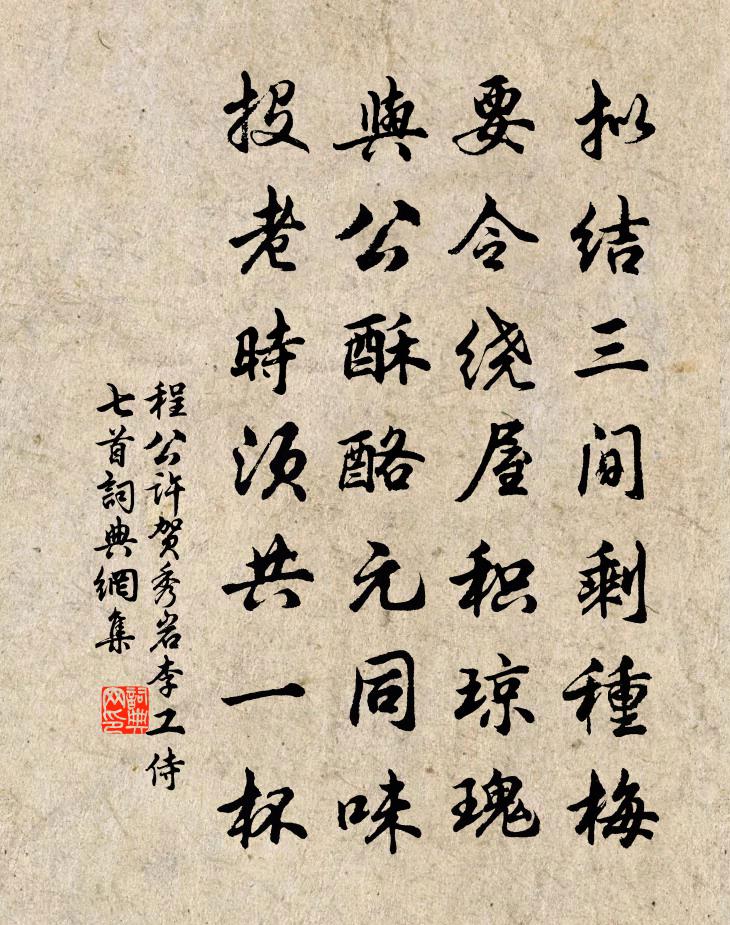 拟结三间剩種梅
要令绕屋积琼瑰
與公酥酪元同味
投老時须共一杯
程公许贺秀岩李工侍
七首詞典網集
詞典
网印